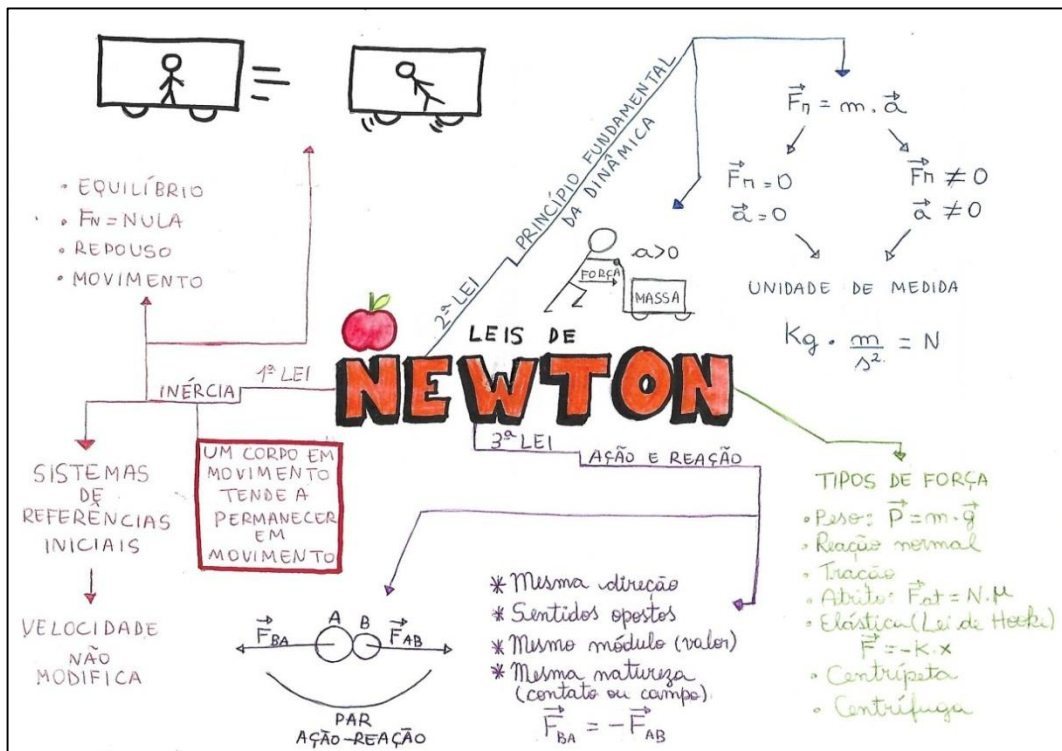 LEIS DE
NEWTON
1ª LEI
INÉRCIA
• EQUILÍBRIO
• FN = NULA
• REPOUSO
• MOVIMENTO
SISTEMAS
DE
REFERÊNCIAS
INICIAIS
VELOCIDADE
NÃO
MODIFICA
UM CORPO EM
MOVIMENTO
TENDE A
PERMANECER
EM
MOVIMENTO
2ª LEI
PRINCÍPIO FUNDAMENTAL
DA DINÂMICA
a>0
FORÇA
MASSA
F⃗n = m . a⃗
F⃗n = 0
a⃗ = 0
F⃗n ≠ 0
a⃗ ≠ 0
UNIDADE DE MEDIDA
Kg . m/s² = N
3ª LEI
AÇÃO E REAÇÃO
F⃗BA
A
B
F⃗AB
PAR
AÇÃO-REAÇÃO
* Mesma direção
* Sentidos opostos
* Mesmo módulo (valor)
* Mesma natureza
(contato ou campo)
F⃗BA = -F⃗AB
TIPOS DE FORÇA
• Peso: P⃗ = m . g⃗
• Reação normal
• Tração
• Atrito: F⃗at = N.μ
• Elástica (Lei de Hooke)
F⃗ = -K. x
• Centrípeta
• Centrífuga